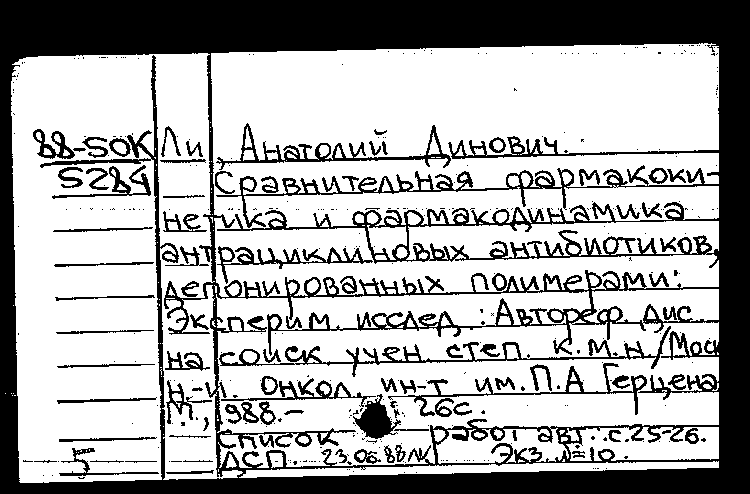 88-50К Ли, Анатолий Динович.
5284 Сравнительная фармакоки-
нетика и фармакодинамика
антрациклиновых антибиотиков,
депонированных полимерами:
Эксперим. исслед.: Автореф. дис.
на соиск. учен. степ. к.м.н./Моск
н.-и. онкол. ин-т им. П.А Герцена
М., 1988.- 26с.
Список работ авт.: с.25-26.
5 ДСП. 23.06.88 Экз. №10.